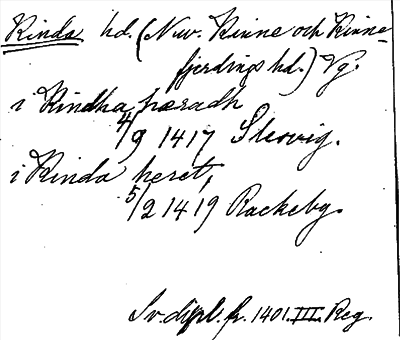 Kinda hd. (Nuv. Kinne och Kinne-
fjerdings hd.) Vg.
i Kindha hæradh
4/9 1417 Slesvig.
i Kinda heret,
5/2 1419 Rackeby.
Sv. dipl. fr. 1401. III. Reg.